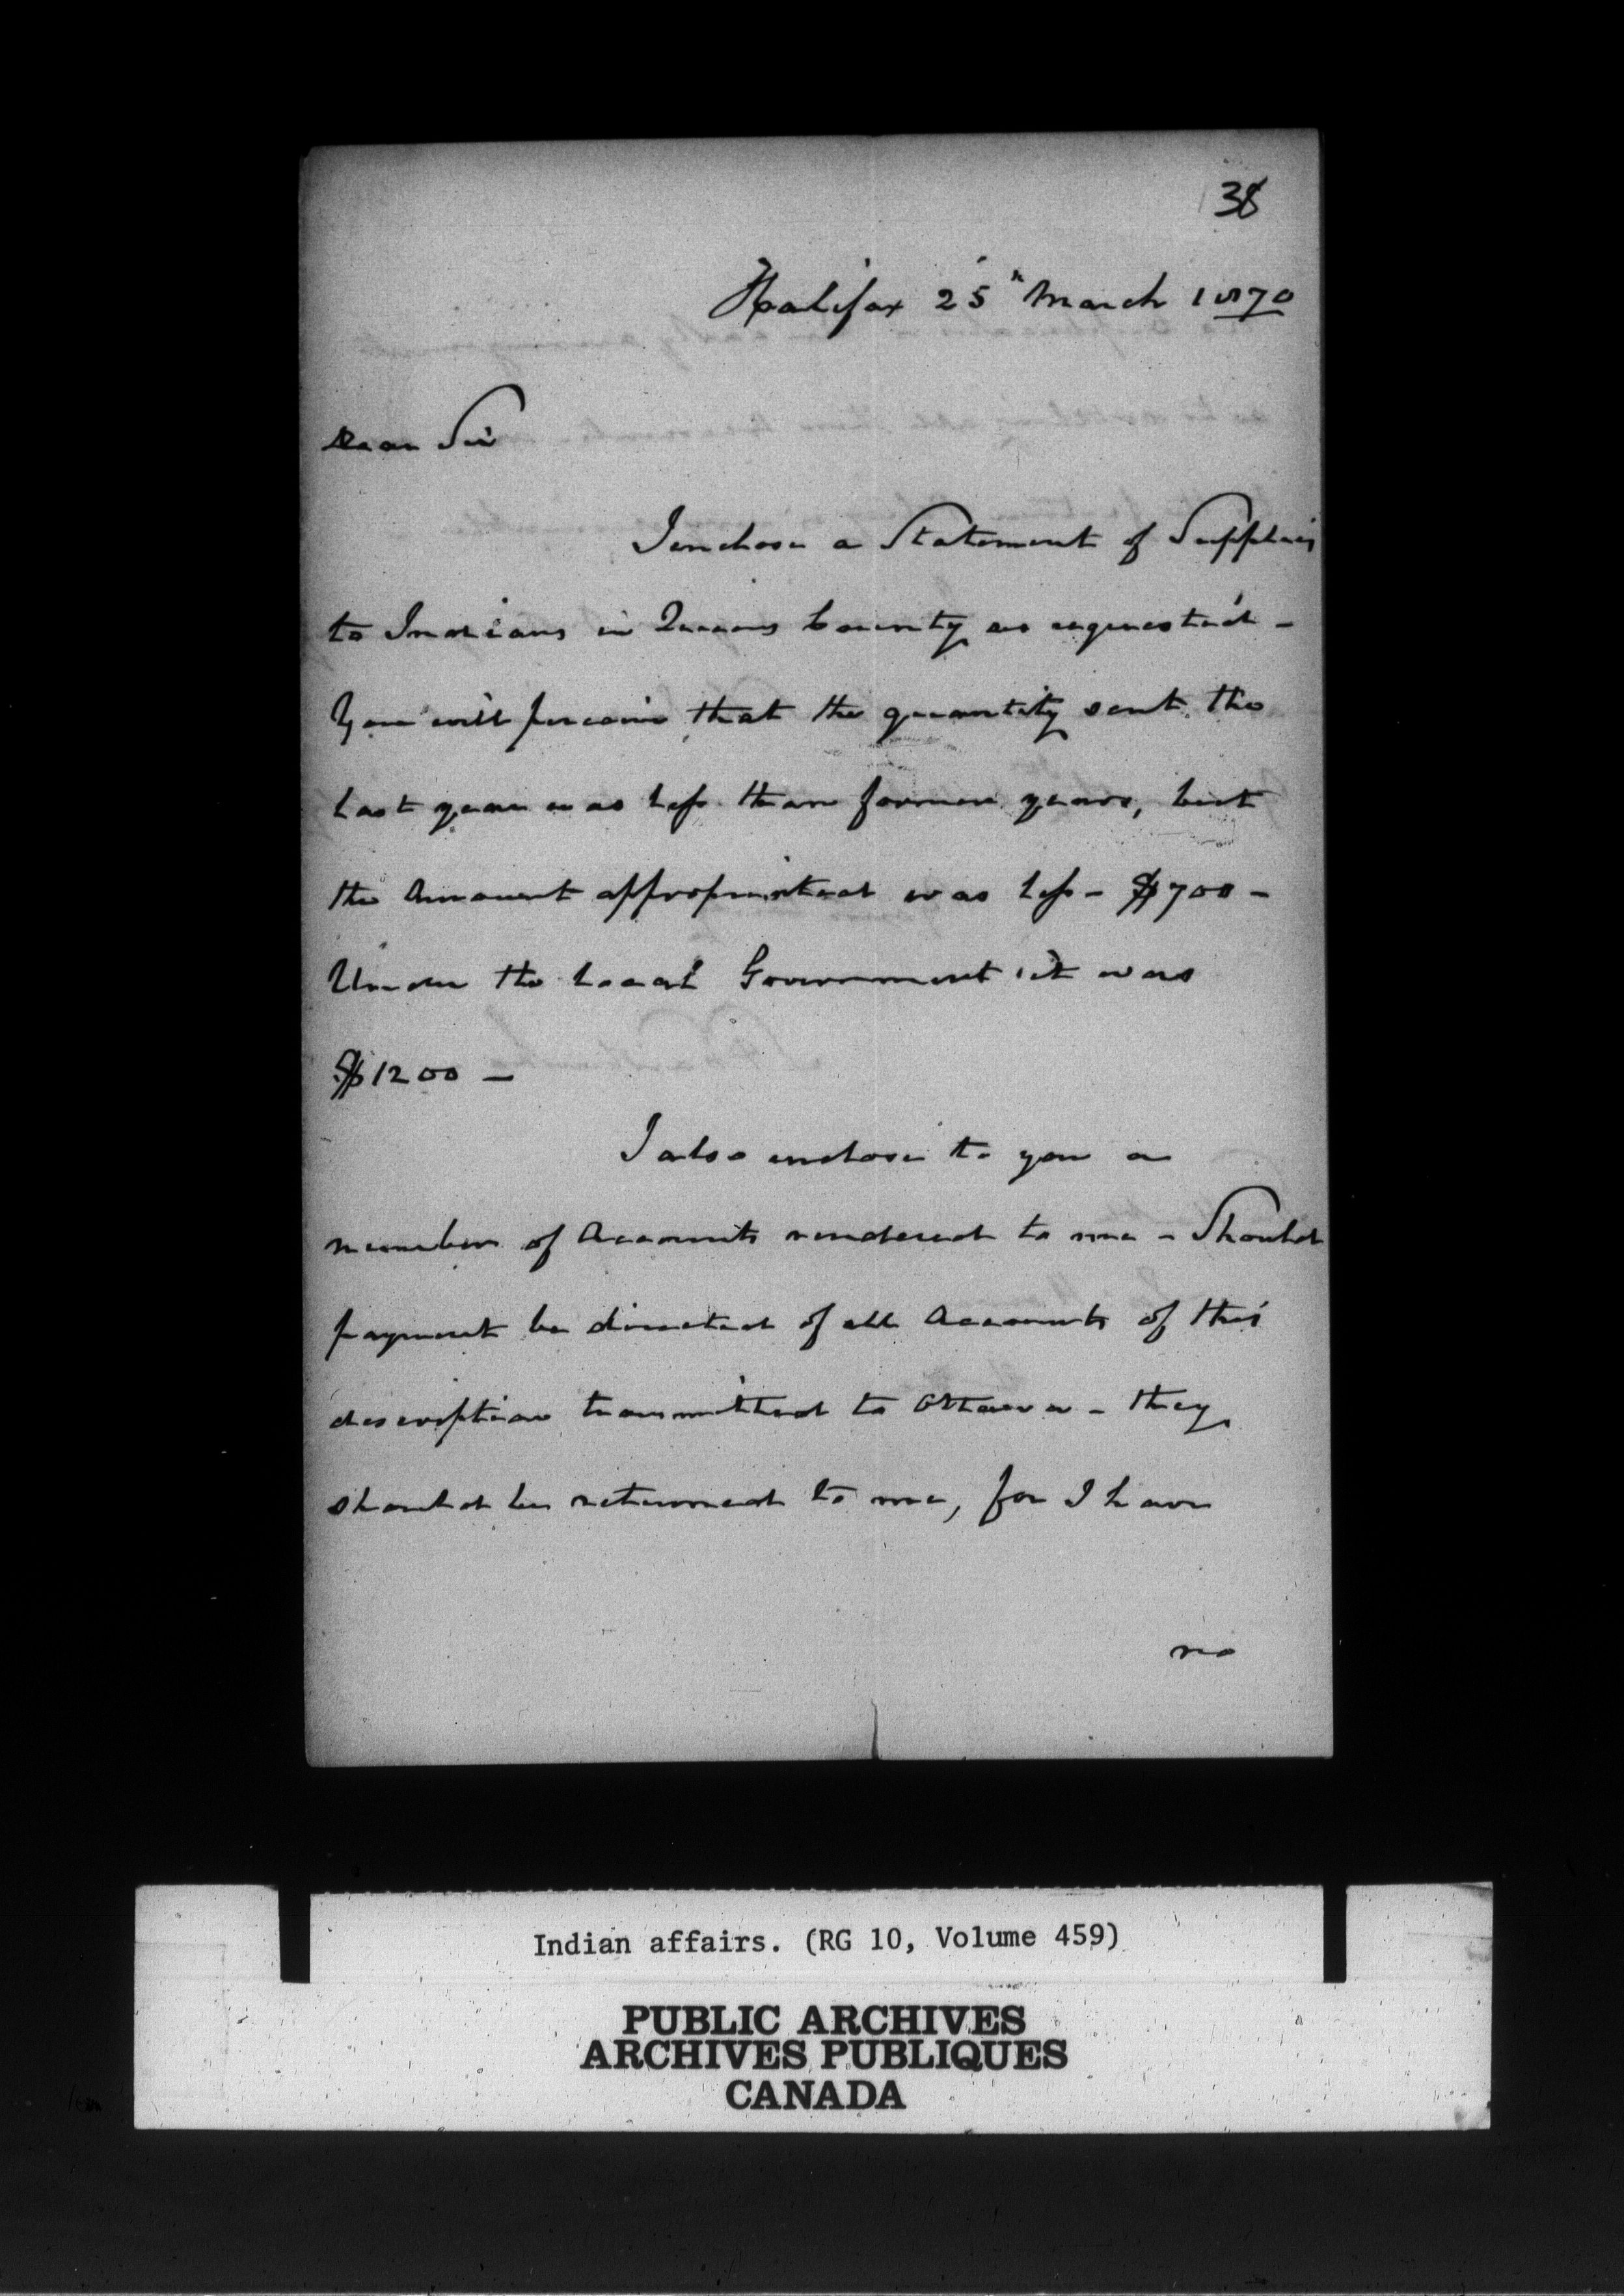 38
Halifax 25th March 1870
Dear Sir
I enclose a Statement of Supplies
to Indians in Queens County as requested -
You will perceive that the quantity sent the
last year was less than former years, but
the Amount appropriated was less - $700 -
Under the Local Government it was
$1200 -
I also enclose to you a
number of Accounts rendered to me - Should
payment be directed of all Accounts of this
description transmitted to Ottawa - they
should be returned to me, for I have
no
Indian affairs. (RG 10, Volume 459)
PUBLIC ARCHIVES
ARCHIVES PUBLIQUES
CANADA